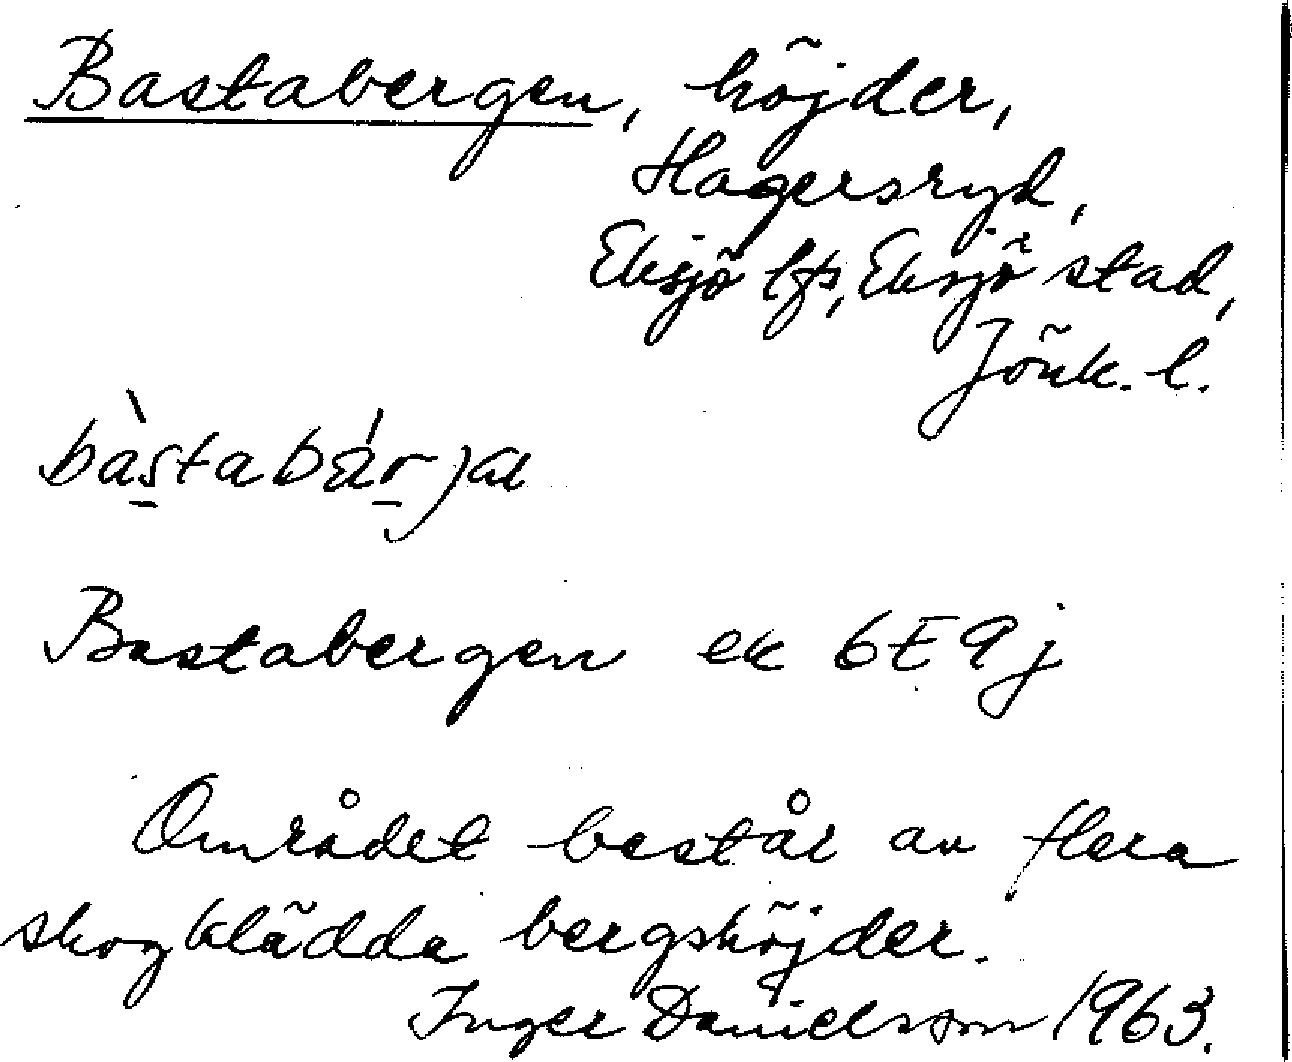 Bastabergen, höjder,
Hagersryd,
Eksjö lfs, Eksjö stad,
Jönk. l.
Bastabergen ek 6E9j
Området består av flera
skogklädda bergshöjder.
Inger Danielsson 1963.